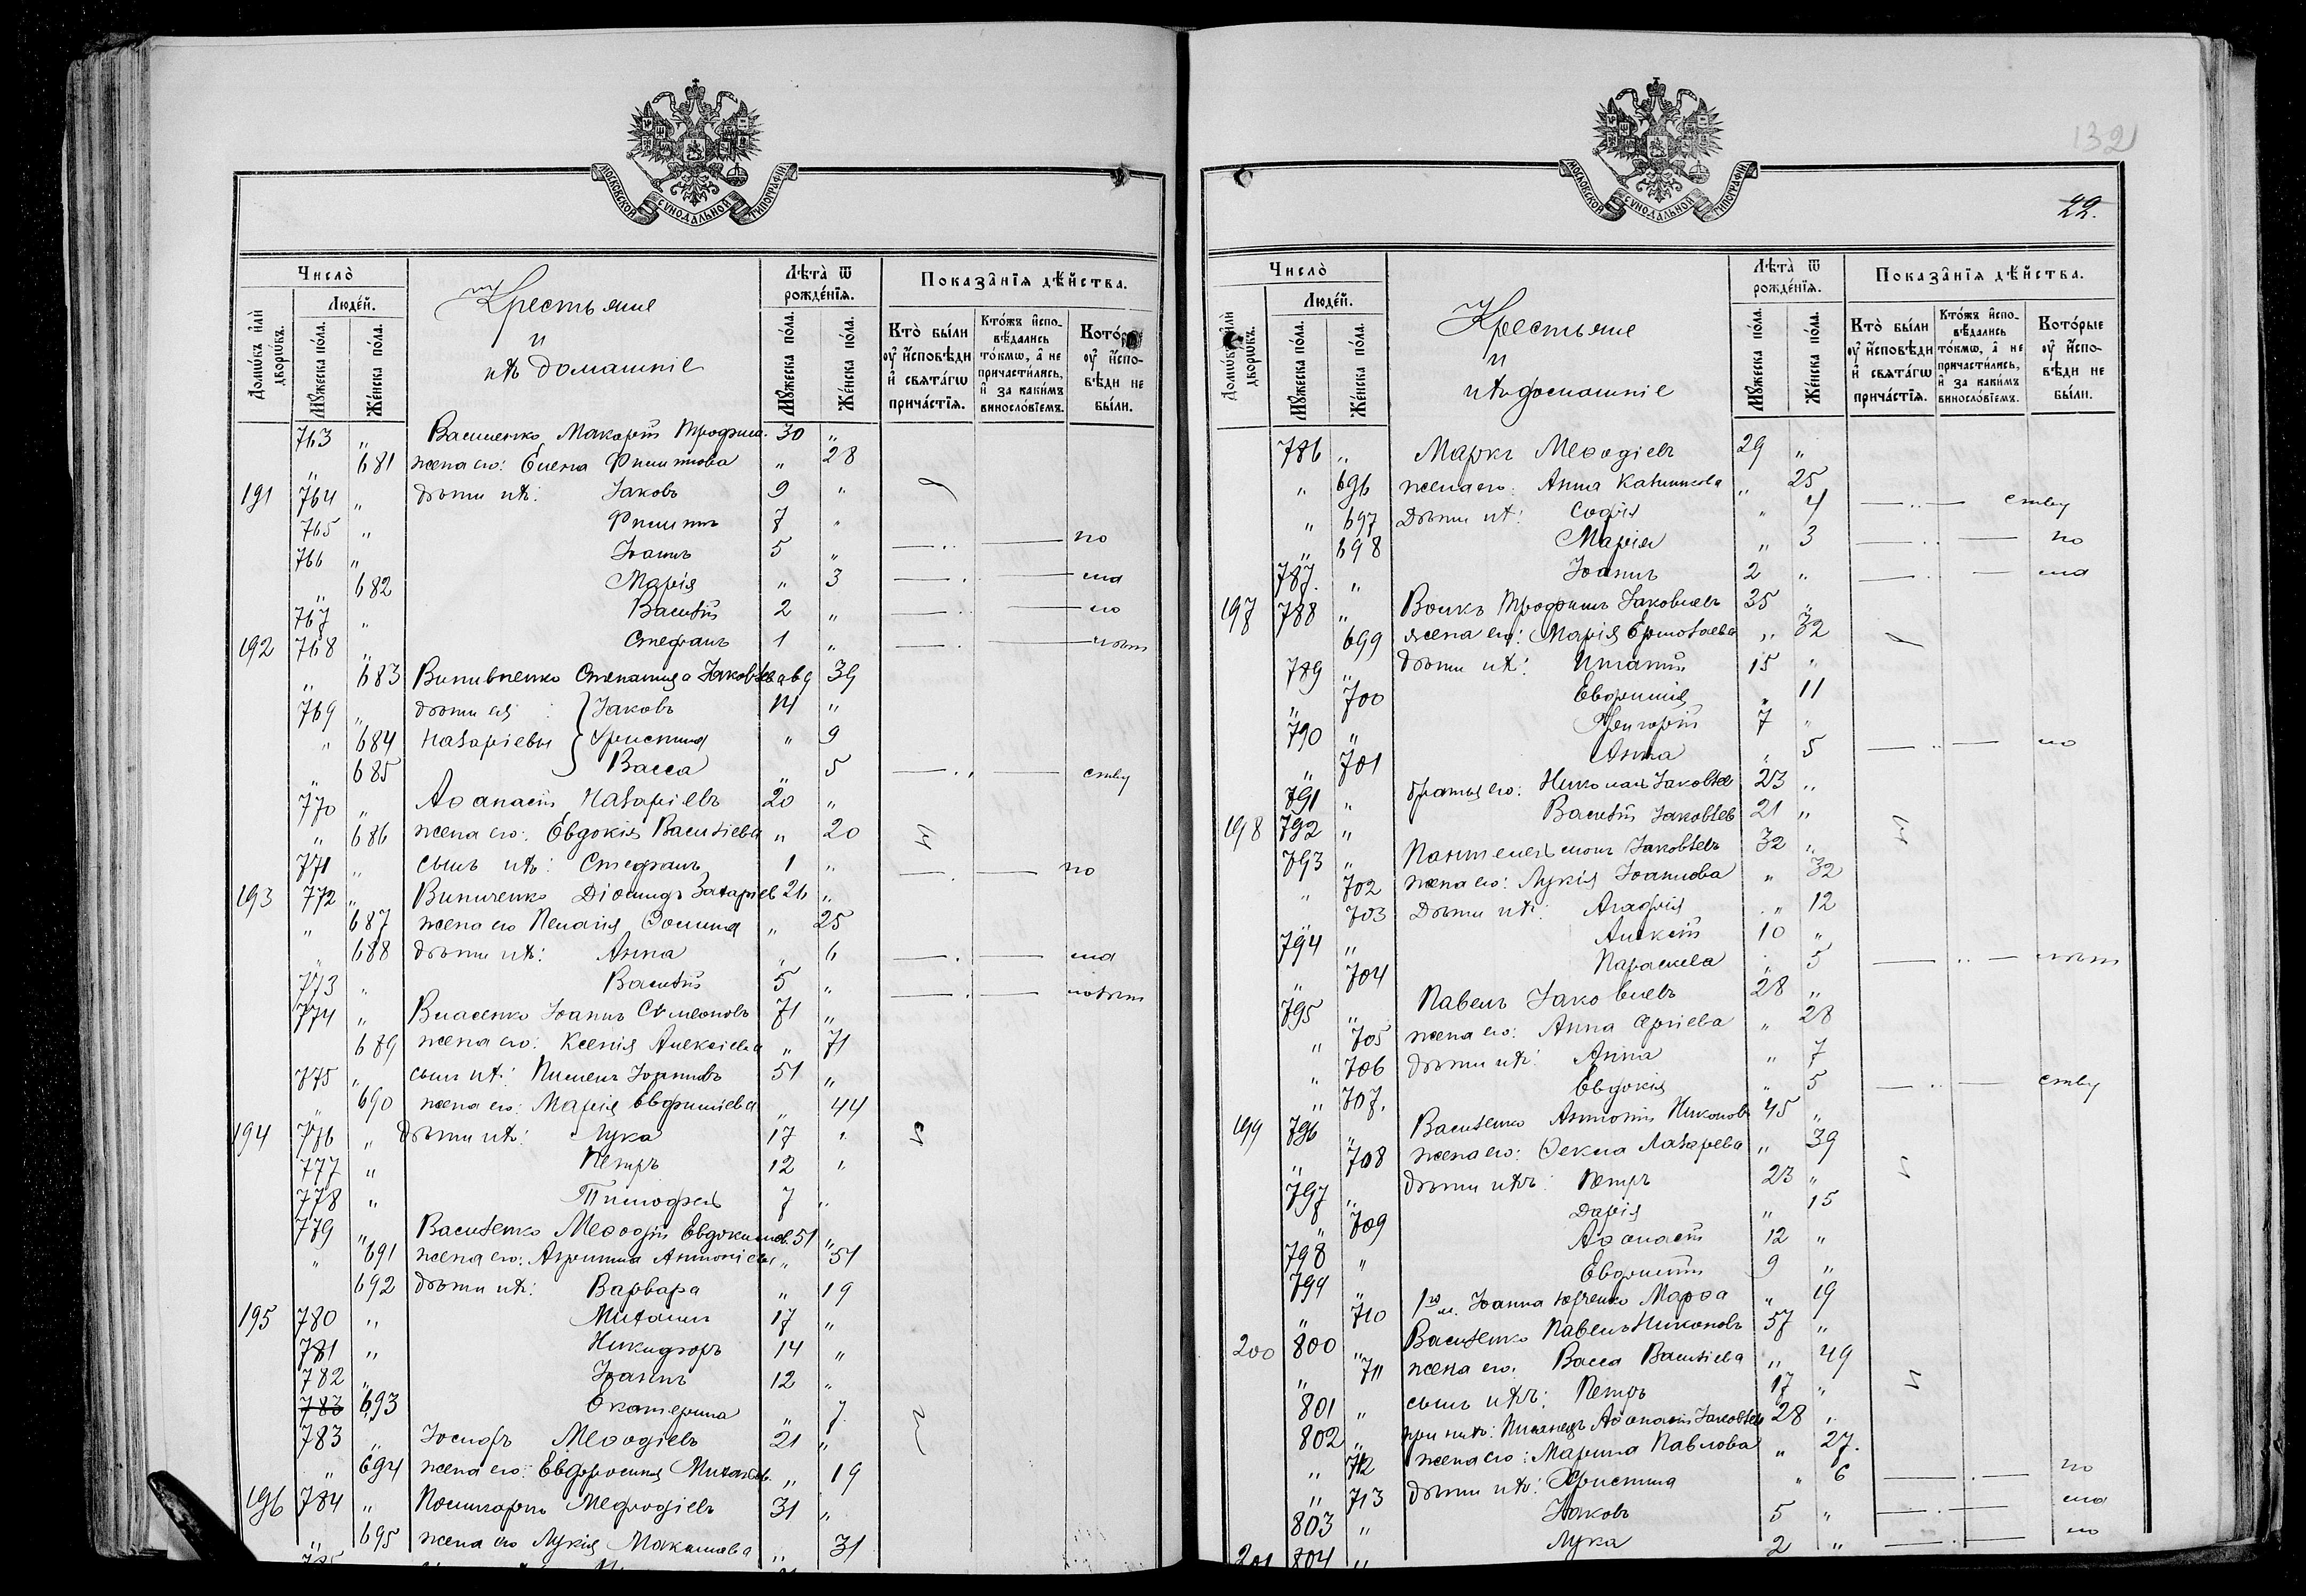 МОСКОВСКОЙ СѴНОДАЛЬНОЙ ТИПОГРАФІИ.
Число̀
Людéй.
Домѡ́въ и҆лѝ дворѡ́въ.
Мꙋ́жеска по́ла.
Же́нска по́ла.
Крестьяне
и
ихъ домашніе
Лѣта̀ ѿ рожде́нїѧ.
Мꙋ́жеска по́ла.
Же́нска по́ла.
Показа̑нїѧ дѣ́йства.
Кто̀ бы́ли ᲂу҆ и҆́сповѣди и҆ свѧта́гѡ прича́стїѧ.
Кто́жъ и҆спо-вѣ́дались то́кмѡ, а҆ не причасти́лись, и҆ за каки́мъ винослові́емъ.
Кото́рые ᲂу҆ и҆́спо-вѣди не бы́ли.
763 „ Василенко Макарій Трофим. 30 „
„ 681 жена его: Елена Филиппова „ 28
191 764 „ дѣти ихъ: Іаковъ 9 „
765 „ Филиппъ 7 „
766 „ Іоаннъ 5 „ по
„ 682 Марія „ 3 ма
767 „ Василій 2 „ ло
192 768 „ Стефанъ 1 „ лѣтст
„ 683 Степанида Іаковлева 39
769 „ дѣти ея: Іаковъ 14 „
„ 684 Назаріевы Христина „ 9
„ 685 Васса „ 5 ству
770 „ Аѳанасій Назаріевъ 20 „
„ 686 жена его: Евдокія Василіева „ 20
771 „ сынъ ихъ: Стефанъ 1 „ по
193 772 „ Діомидъ Захаріев 26 „
„ 687 жена его Пелагія Ѳомина „ 25
„ 688 дѣти ихъ: Анна „ 6 ма
773 „ Василій 5 „
774 „ Власенко Іоаннъ Сѵмеоновъ 71 „
689 жена его: Ксенія Алексіева „ 71
775 „ сынъ ихъ: Пименъ Іоанновъ 51 „
„ 690 жена его: Марія Евфиміева „ 44
194 776 „ дѣти ихъ: Лука 17 „
777 „ Петръ 12 „
778 „ Тимофей 7 „
779 „ Василенко Меѳодій Евдокимов. 51 „
„ 691 жена его: Агриппина Антоніева „ 51
692 дѣти ихъ: Варвара „ 19
195 780 „ Михаилъ 17 „
781 „ Никифоръ 14 „
782 „ Іоаннъ 12 „
783 693 Екатерина „ 7
783 „ Іосифъ Меѳодіевъ 21 „
„ 694 жена его: Евфросинія Михайлов. „ 19
196 784 „ Поликарпъ Мефодіевъ 31 „
„ 695 жена его Лукія Максимова „ 31
132
22.
МОСКОВСКОЙ СѴНОДАЛЬНОЙ ТИПОГРАФІИ.
Число̀
Людéй.
Домѡ́въ и҆лѝ дворѡ́въ.
Мꙋ́жеска по́ла.
Же́нска по́ла.
Крестьяне
и
ихъ домашніе
Лѣта̀ ѿ рожде́нїѧ.
Мꙋ́жеска по́ла.
Же́нска по́ла.
Показа̑нїѧ дѣ́йства.
Кто̀ бы́ли ᲂу҆ и҆́сповѣди и҆ свѧта́гѡ прича́стїѧ.
Кто́жъ и҆спо-вѣ́дались то́кмѡ, а҆ не причасти́лись, и҆ за каки́мъ винослові́емъ.
Кото́рые ᲂу҆ и҆́спо-вѣди не бы́ли.
786 „ Маркъ Меѳодіевъ 29 „
„ 696 жена его: Анна Каллиникова „ 25
„ 697 дѣти ихъ: Софія „ 4 ству
„ 698 Марія „ 3 по
787. „ Іоаннъ 2 „ ма
197 788 „ Волкъ Трофимъ Іаковлевъ 35 „
699 жена его: Марія Ермолаева „ 32
789 „ дѣти ихъ: Игнатій 15 „
„ 700 Евфимія „ 11
790 „ Григорій 7 „
„ 701 Анна „ 5 ло
791 „ братья его: Николай Іаковлев 23 „
198 792 „ Василій Іаковлев 21 „
793 „ Пантелеймонъ Іаковлевъ 32 „
„ 702 жена его: Лукія Іоаннова „ 32
703 Дѣти ихъ: Агафія „ 12
794 „ Алексій 10 „
„ 704 Параскева „ 5
795 „ Павелъ Іаковлевъ 28 „
„ 705 жена его: Анна „ 28
„ 706 дѣти ихъ: Анна „ 7
„ 707. Евдокія „ 5 ству
199 796 „ Василенко Антоній Никонов 45 „
„ 708 жена его: Ѳекла Лазарева „ 39
797 „ дѣти ихъ: Петръ 23 „
„ 709 Дарія „ 15
798 „ Аѳанасій 12 „
794 „ Евфимій 9 „
„ 710 Іоанна Марѳа „ 19
200 800 „ Василенко Павелъ Никоновъ 57 „
„ 711 жена его: Васса Василіева „ 49
801 „ сынъ ихъ: Петръ 17 „
802 „ при нихъ: Аѳанасій Іаковлев 28 „
„ 712 жена его: Марина Павлова „ 27.
„ 713 дѣти ихъ: Христина „ 6 по
803 „ Іаковъ 5 „ ма
201 804 „ Лука 2 „ ло